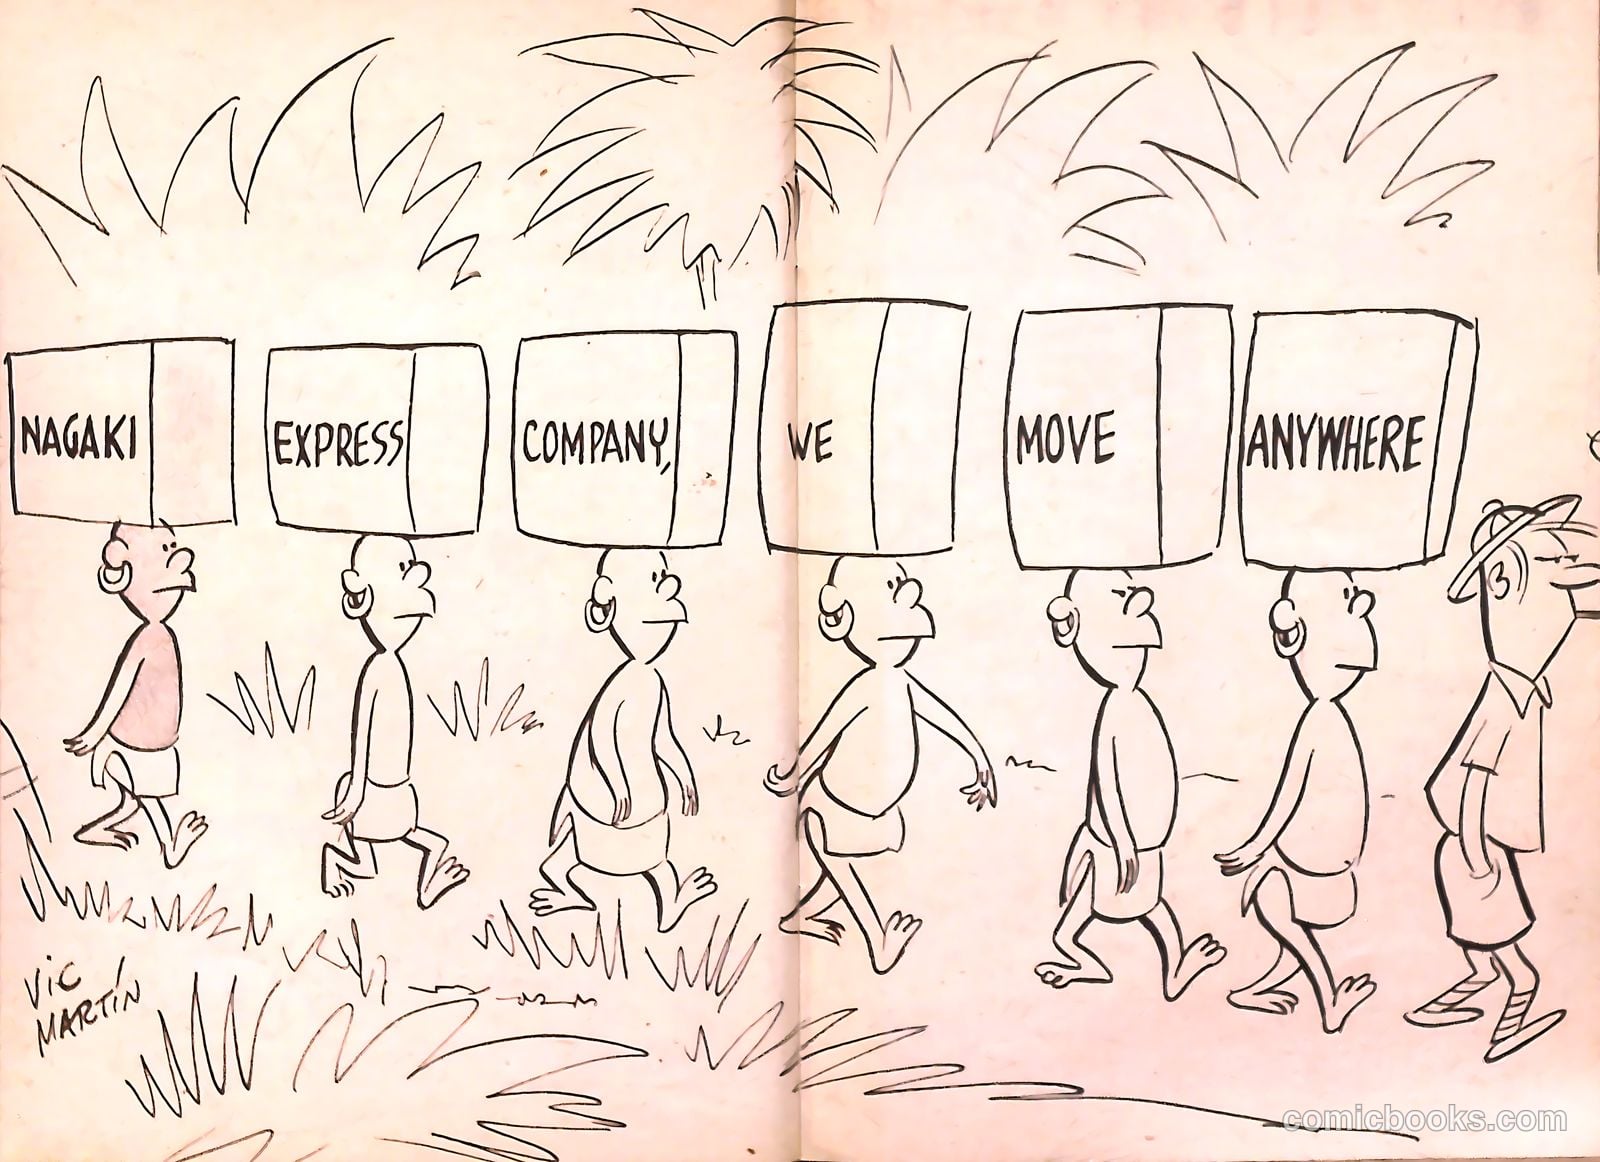 NAGAKI
EXPRESS
COMPANY,
WE
MOVE
ANYWHERE
VIC
MARTÍN
comicbooks.com